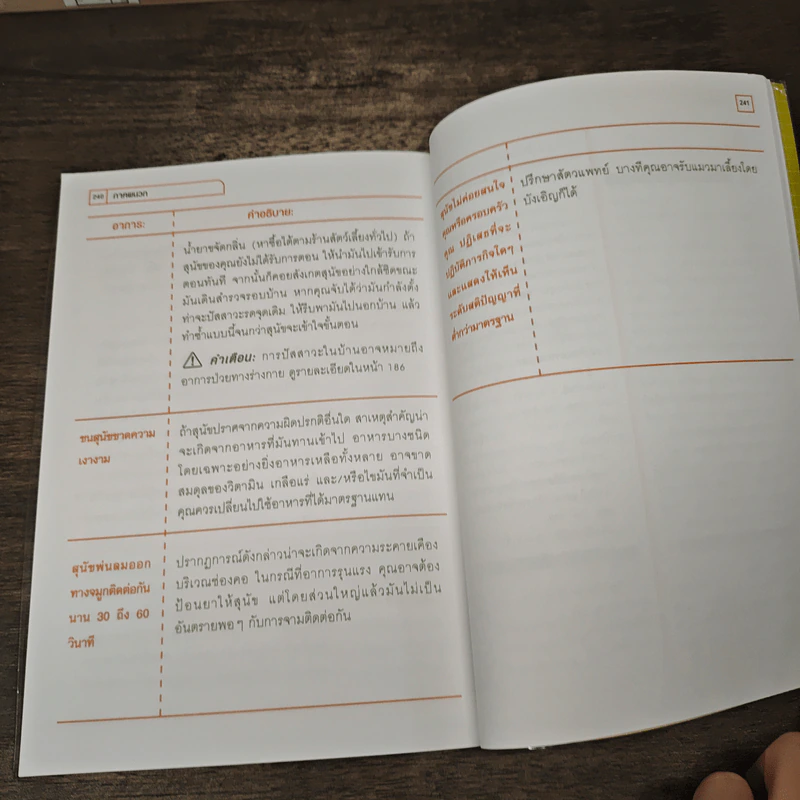 240 ภาคผนวก
อาการ: คำอธิบาย:
น้ำยาขจัดกลิ่น (หาซื้อได้ตามร้านสัตว์เลี้ยงทั่วไป) ถ้า
สุนัขของคุณยังไม่ได้รับการตอน ให้นำมันไปเข้ารับการ
ตอนทันที จากนั้นก็คอยสังเกตสุนัขอย่างใกล้ชิดขณะ
มันเดินสำรวจรอบบ้าน หากคุณจับได้ว่ามันกำลังตั้ง
ท่าจะปัสสาวะรดจุดเดิม ให้รีบพามันไปนอกบ้าน แล้ว
ทำซ้ำแบบนี้จนกว่าสุนัขจะเข้าใจขั้นตอน
คำเตือน: การปัสสาวะในบ้านอาจหมายถึง
อาการป่วยทางร่างกาย ดูรายละเอียดในหน้า 186
ขนสุนัขขาดความ
เงางาม
ถ้าสุนัขปราศจากความผิดปรกติอื่นใด สาเหตุสำคัญน่า
จะเกิดจากอาหารที่มันทานเข้าไป อาหารบางชนิด
โดยเฉพาะอย่างยิ่งอาหารเหลือทั้งหลาย อาจขาด
สมดุลของวิตามิน เกลือแร่ และ/หรือไขมันที่จำเป็น
คุณควรเปลี่ยนไปใช้อาหารที่ได้มาตรฐานแทน
สุนัขพ่นลมออก
ทางจมูกติดต่อกัน
นาน 30 ถึง 60
วินาที
ปรากฏการณ์ดังกล่าวน่าจะเกิดจากความระคายเคือง
บริเวณช่องคอ ในกรณีที่อาการรุนแรง คุณอาจต้อง
ป้อนยาให้สุนัข แต่โดยส่วนใหญ่แล้วมันไม่เป็น
อันตรายพอๆ กับการจามติดต่อกัน
241
สุนัขไม่ค่อยสนใจ
คุณหรือครอบครัว
คุณ ปฏิเสธที่จะ
ปฏิบัติภารกิจใดๆ
และแสดงให้เห็น
ระดับสติปัญญาที่
ต่ำกว่ามาตรฐาน
ปรึกษาสัตวแพทย์ บางทีคุณอาจรับแมวมาเลี้ยงโดย
บังเอิญก็ได้